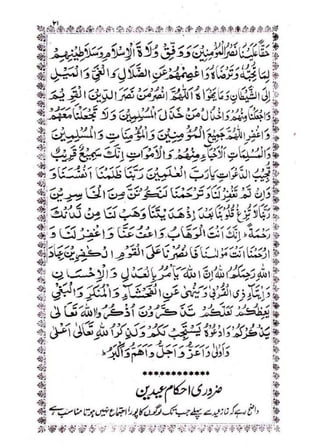 ۲۱
حَقًّا عَلَيْنَا نَصْرُ الْمُؤْمِنِيْنَ وَوَفِّقْ وُلَاةَ الْاِسْلَامِ وَسَلَاطِيْنَهُمْ
لِمَا تُحِبُّهٗ وَتَرْضَاهُ وَاعْصِمْهُمْ عَنِ الضَّلَالِ وَالْغَيِّ وَالْمَيْلِ
اِلَى الشَّيْطَانِ وَمَا يَهْوَاهُ اَللّٰهُمَّ انْصُرْ مَنْ نَصَرَ الدِّيْنَ الْقَوِيْمَ
وَاجْعَلْنَا مِنْهُمْ وَاخْذُلْ مَنْ خَذَلَ الْمُسْلِمِيْنَ وَلَا تَجْعَلْنَا مَعَهُمْ
وَاغْفِرِ اللّٰهُمَّ جَمِيْعَ الْمُؤْمِنِيْنَ وَالْمُؤْمِنَاتِ وَالْمُسْلِمِيْنَ
وَالْمُسْلِمَاتِ الْاَحْيَاءِ مِنْهُمْ وَالْاَمْوَاتِ اِنَّكَ سَمِيْعٌ قَرِيْبٌ
مُّجِيْبُ الدَّعْوَاتِ يَارَبَّ الْعٰلَمِيْنَ رَبَّنَا ظَلَمْنَا اَنْفُسَنَا وَ
وَاِنْ لَّمْ تَغْفِرْ لَنَا وَتَرْحَمْنَا لَنَكُوْنَنَّ مِنَ الْخَاسِرِيْنَ
رَبَّنَا لَا تُزِغْ قُلُوْبَنَا بَعْدَ اِذْ هَدَيْتَنَا وَهَبْ لَنَا مِنْ لَّدُنْكَ
رَحْمَةً اِنَّكَ اَنْتَ الْوَهَّابُ وَاعْفُ عَنَّا وَاغْفِرْ لَنَا وَ
ارْحَمْنَا اَنْتَ مَوْلٰىنَا فَانْصُرْنَا عَلَى الْقَوْمِ الْكٰفِرِيْنَ عِبَادَ
اللّٰهِ رَحِمَكُمُ اللّٰهُ اِنَّ اللّٰهَ يَاْمُرُ بِالْعَدْلِ وَالْاِحْسَانِ
وَاِيْتَآءِ ذِي الْقُرْبٰى وَيَنْهٰى عَنِ الْفَحْشَآءِ وَالْمُنْكَرِ وَالْبَغْيِ
يَعِظُكُمْ لَعَلَّكُمْ تَذَكَّرُوْنَ اُذْكُرُوا اللّٰهَ تَعَالٰى
يَذْكُرْكُمْ وَادْعُوْهُ يَسْتَجِبْ لَكُمْ وَلَذِكْرُ اللّٰهِ تَعَالٰى اَعْلٰى
وَاَوْلٰى وَاَعَزُّ وَاَجَلُّ وَاَهَمُّ وَاَكْبَرُ
ضروری احکام عیدین
واضح رہے کہ نماز عید سے پہلے جب تک لوگوں کا پورا اجتماع نہیں ہوتا مناسب ہے